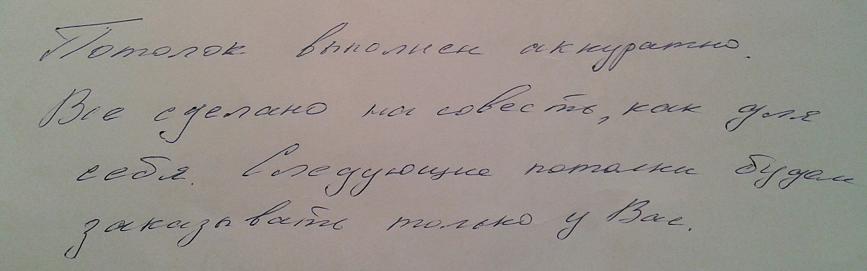 Потолок выполнен аккуратно.
Все сделано на совесть, как для
себя. Следующие потолки будем
заказывать только у Вас.